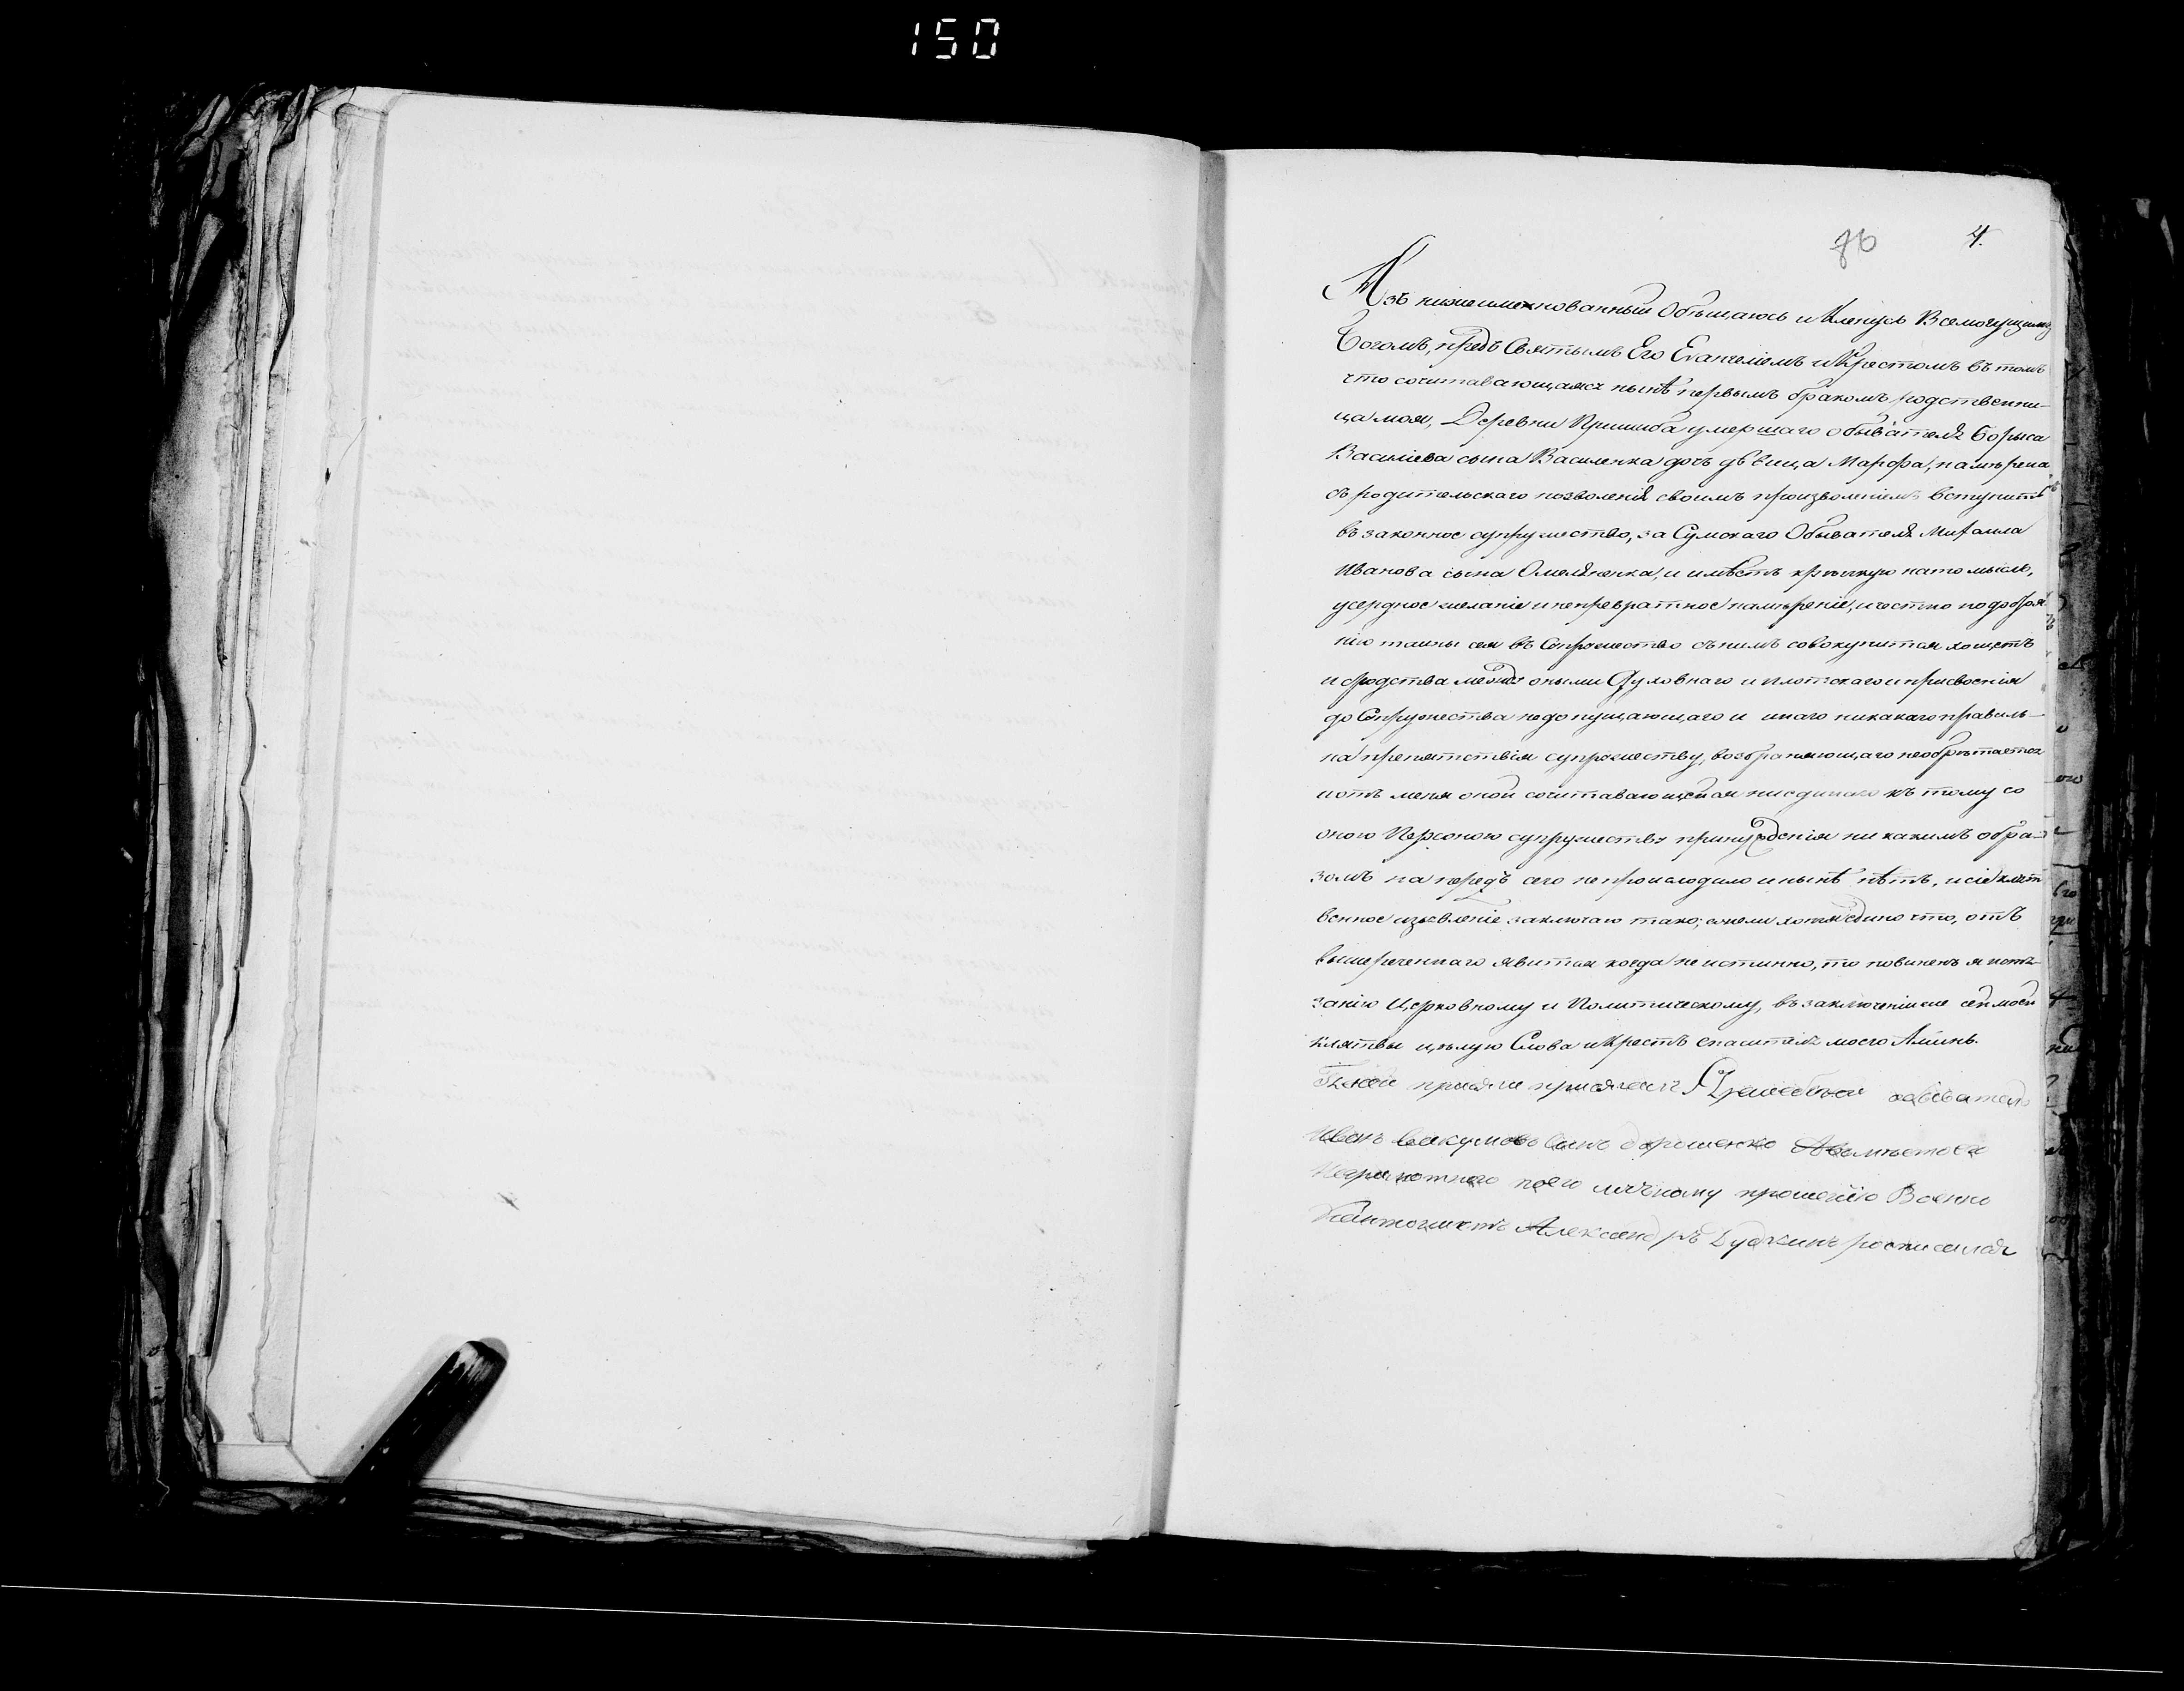 150
76 4.
Азъ нижеимянованный Обѣщаюсь и Кленусь Всемогущимъ
Богомъ, предъ Святымъ Его Евангелiемъ и Крестомъ въ томъ
что сочитавающаяся нынѣ первымъ бракомъ родственни-
ца моя, Деревни Пришиба умершаго обывателя Бориса
Василiева сына Василенка дочь дѣвица Марфа, намѣрена
съ родительскаго позволенiя своимъ произволенiемъ вступить
въ законное супружество, за Сумскаго Обывателя Михаила
Иванова сына Омеляненка, и имѣетъ крѣпкую на то мысль,
усердное желанiе и непревратное намѣренiе, и честно по добра
нiю тайны сея въ Супружество съ нимъ совокупится хощетъ
и сродства между оными Духовнаго и плотскаго и присвоенiя
до Супружества недопущающаго и инаго никакаго правиль-
на препятствiя супружеству, возбраняющаго необрѣтается
и отъ меня оной сочитавающейся ниединаго къ тому со
оною Персоною супружества принужденiя ни какимъ обра-
зомъ на передъ сего не происходило и нынѣ нѣтъ, и сiе клят
венное изъявленiе заключаю тако; ежели хотя едино что, отъ
вышереченнаго явится когда не истинно, то повиненъ я истя-
занiю Церковному и Политическому, въ заключенiи же сей моей
клятвы цѣлую Слова и Крестъ спасителя моего Аминь.
присяги обiватель
Иванъ сынъ Дорошенко Авместоего
Неграмотнаго по его личному прошенiю Военни
Александръ росписалая